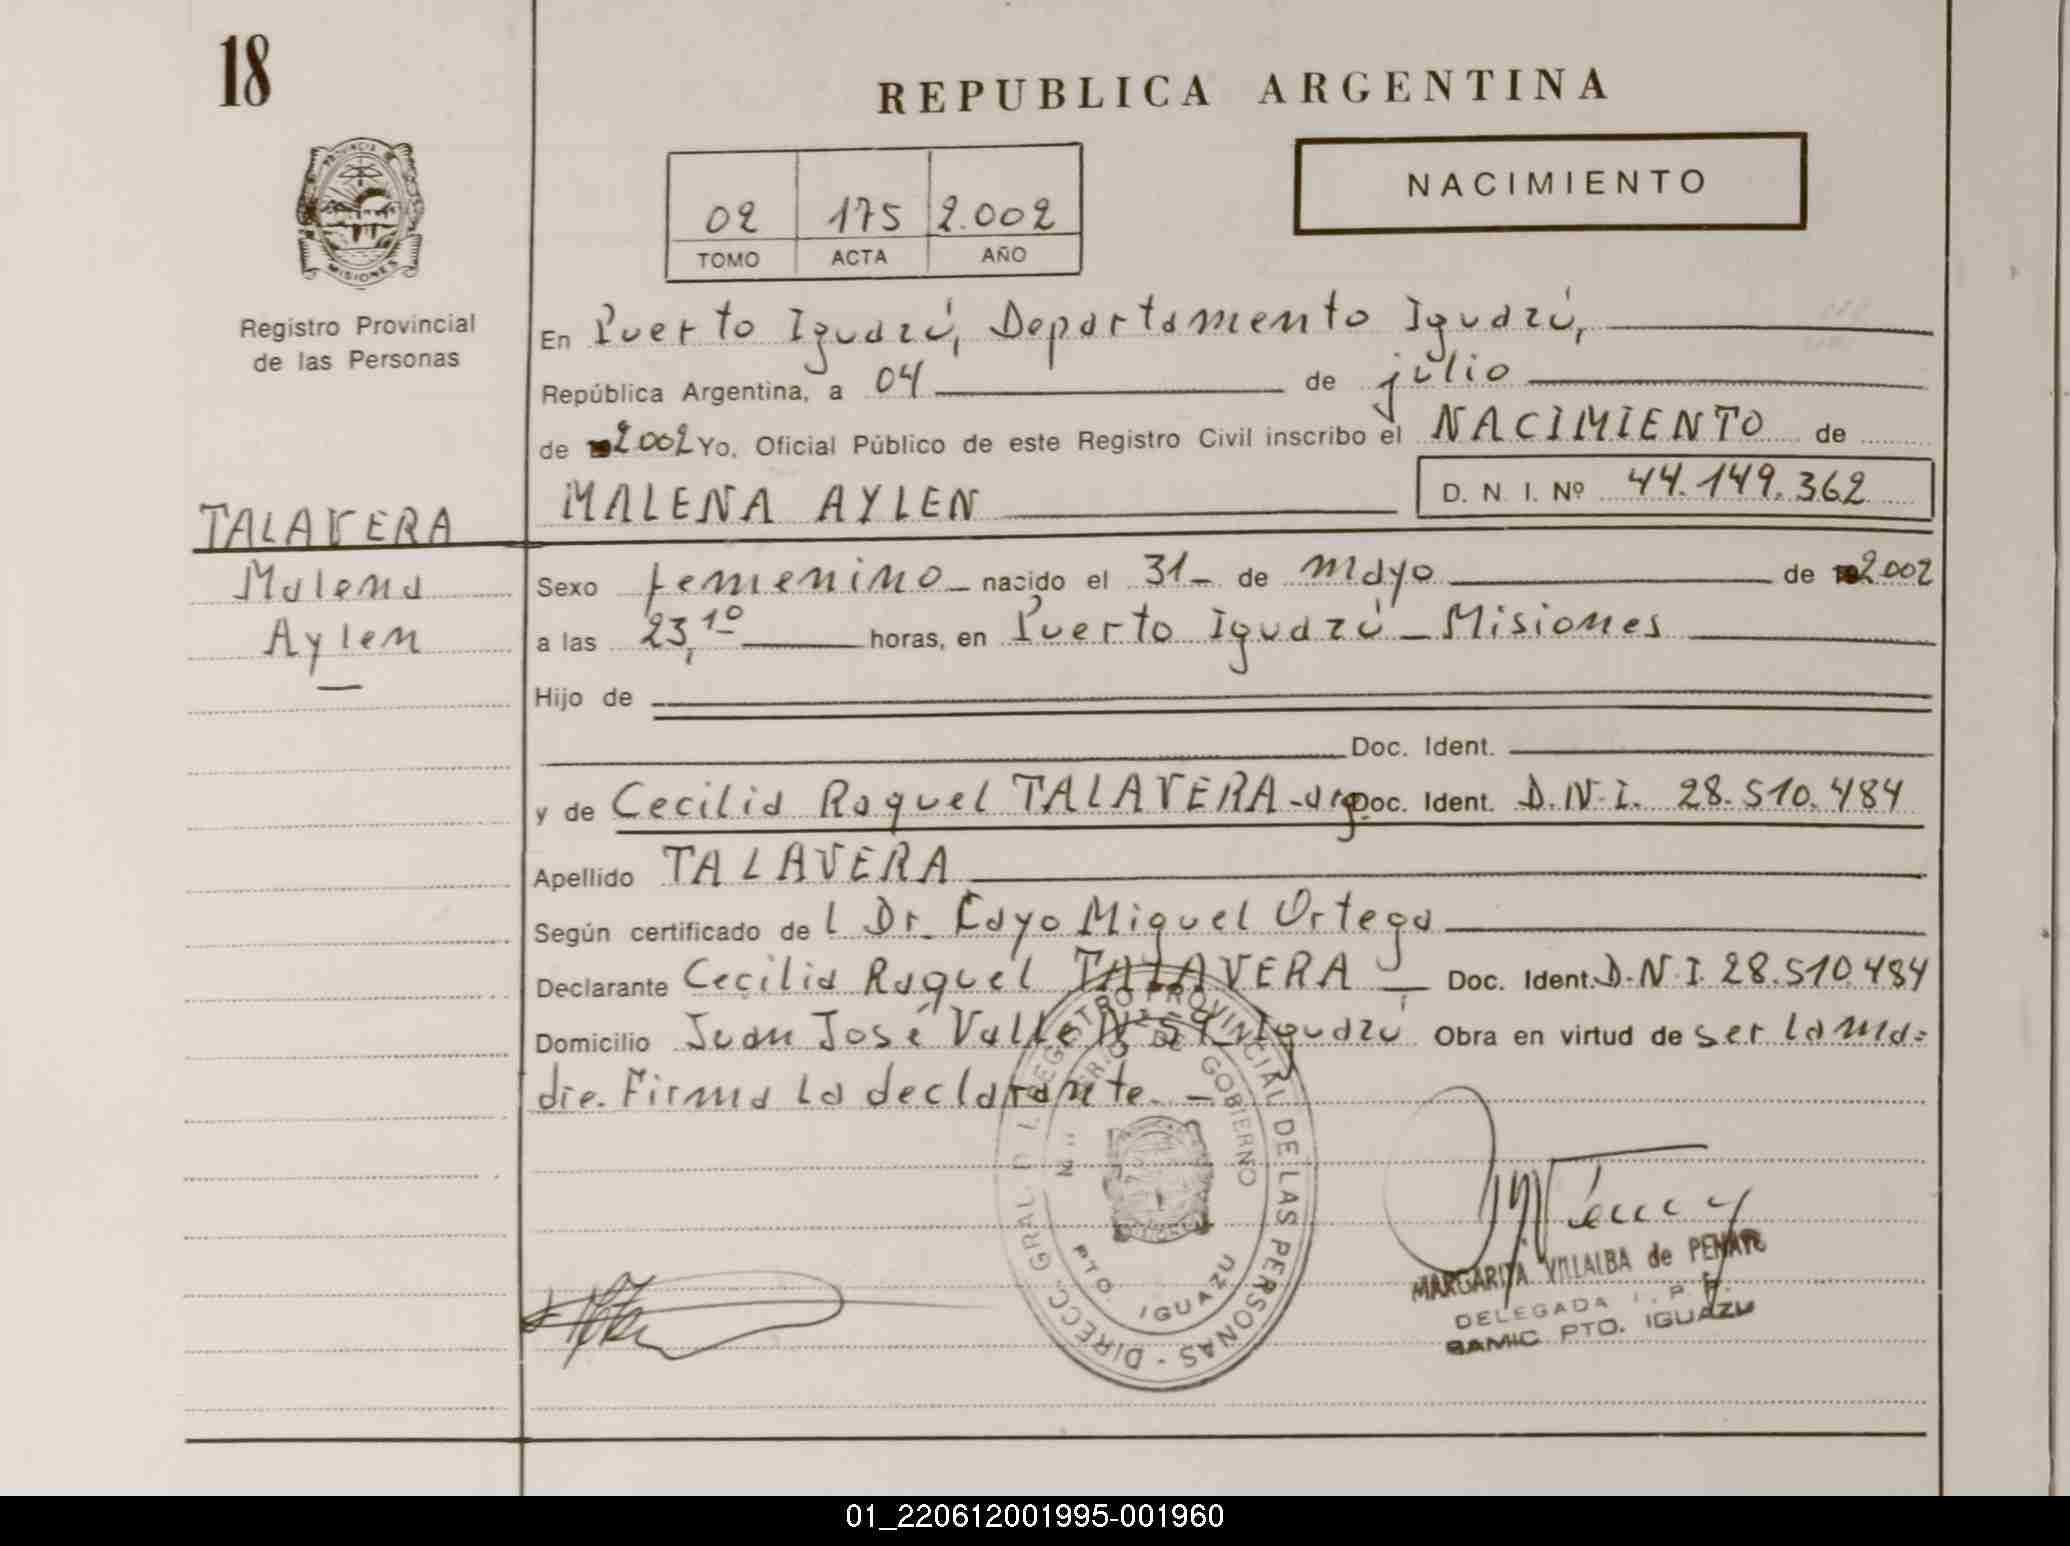 18
REPUBLICA ARGENTINA
NACIMIENTO
02 175 2.002
TOMO ACTA AÑO
PROVINCIA DE
MISIONES
Registro Provincial
de las Personas
En Puerto Iguazú, Departamento Iguazú,
República Argentina, a 04 de julio
de 2002 Yo, Oficial Público de este Registro Civil inscribo el NACIMIENTO de
MALENA AYLEN D. N. I. Nº 44.149.362
TALAVERA
Malena
Aylen
Sexo femenino nacido el 31 de mayo de 2002
a las 23,10 horas, en Puerto Iguazú - Misiones
Hijo de
Doc. Ident.
y de Cecilia Raquel TALAVERA - arg. Doc. Ident. D.N.I. 28.510.484
Apellido TALAVERA
Según certificado de l Dr. Cayo Miguel Ortega
Declarante Cecilia Raquel TALAVERA Doc. Ident. D.N.I. 28.510.484
Domicilio Juan José Valle Nº 51 Iguazú Obra en virtud de ser la ma=
dre. Firma la declarante. -
DIRECC. GRAL. D L REGISTRO PROVINCIAL DE LAS PERSONAS -
DE GOBIERNO
PTO. IGUAZU
MARGARITA VILLALBA de PENAYO
DELEGADA
SAMIC PTO. IGUAZU
01_220612001995-001960